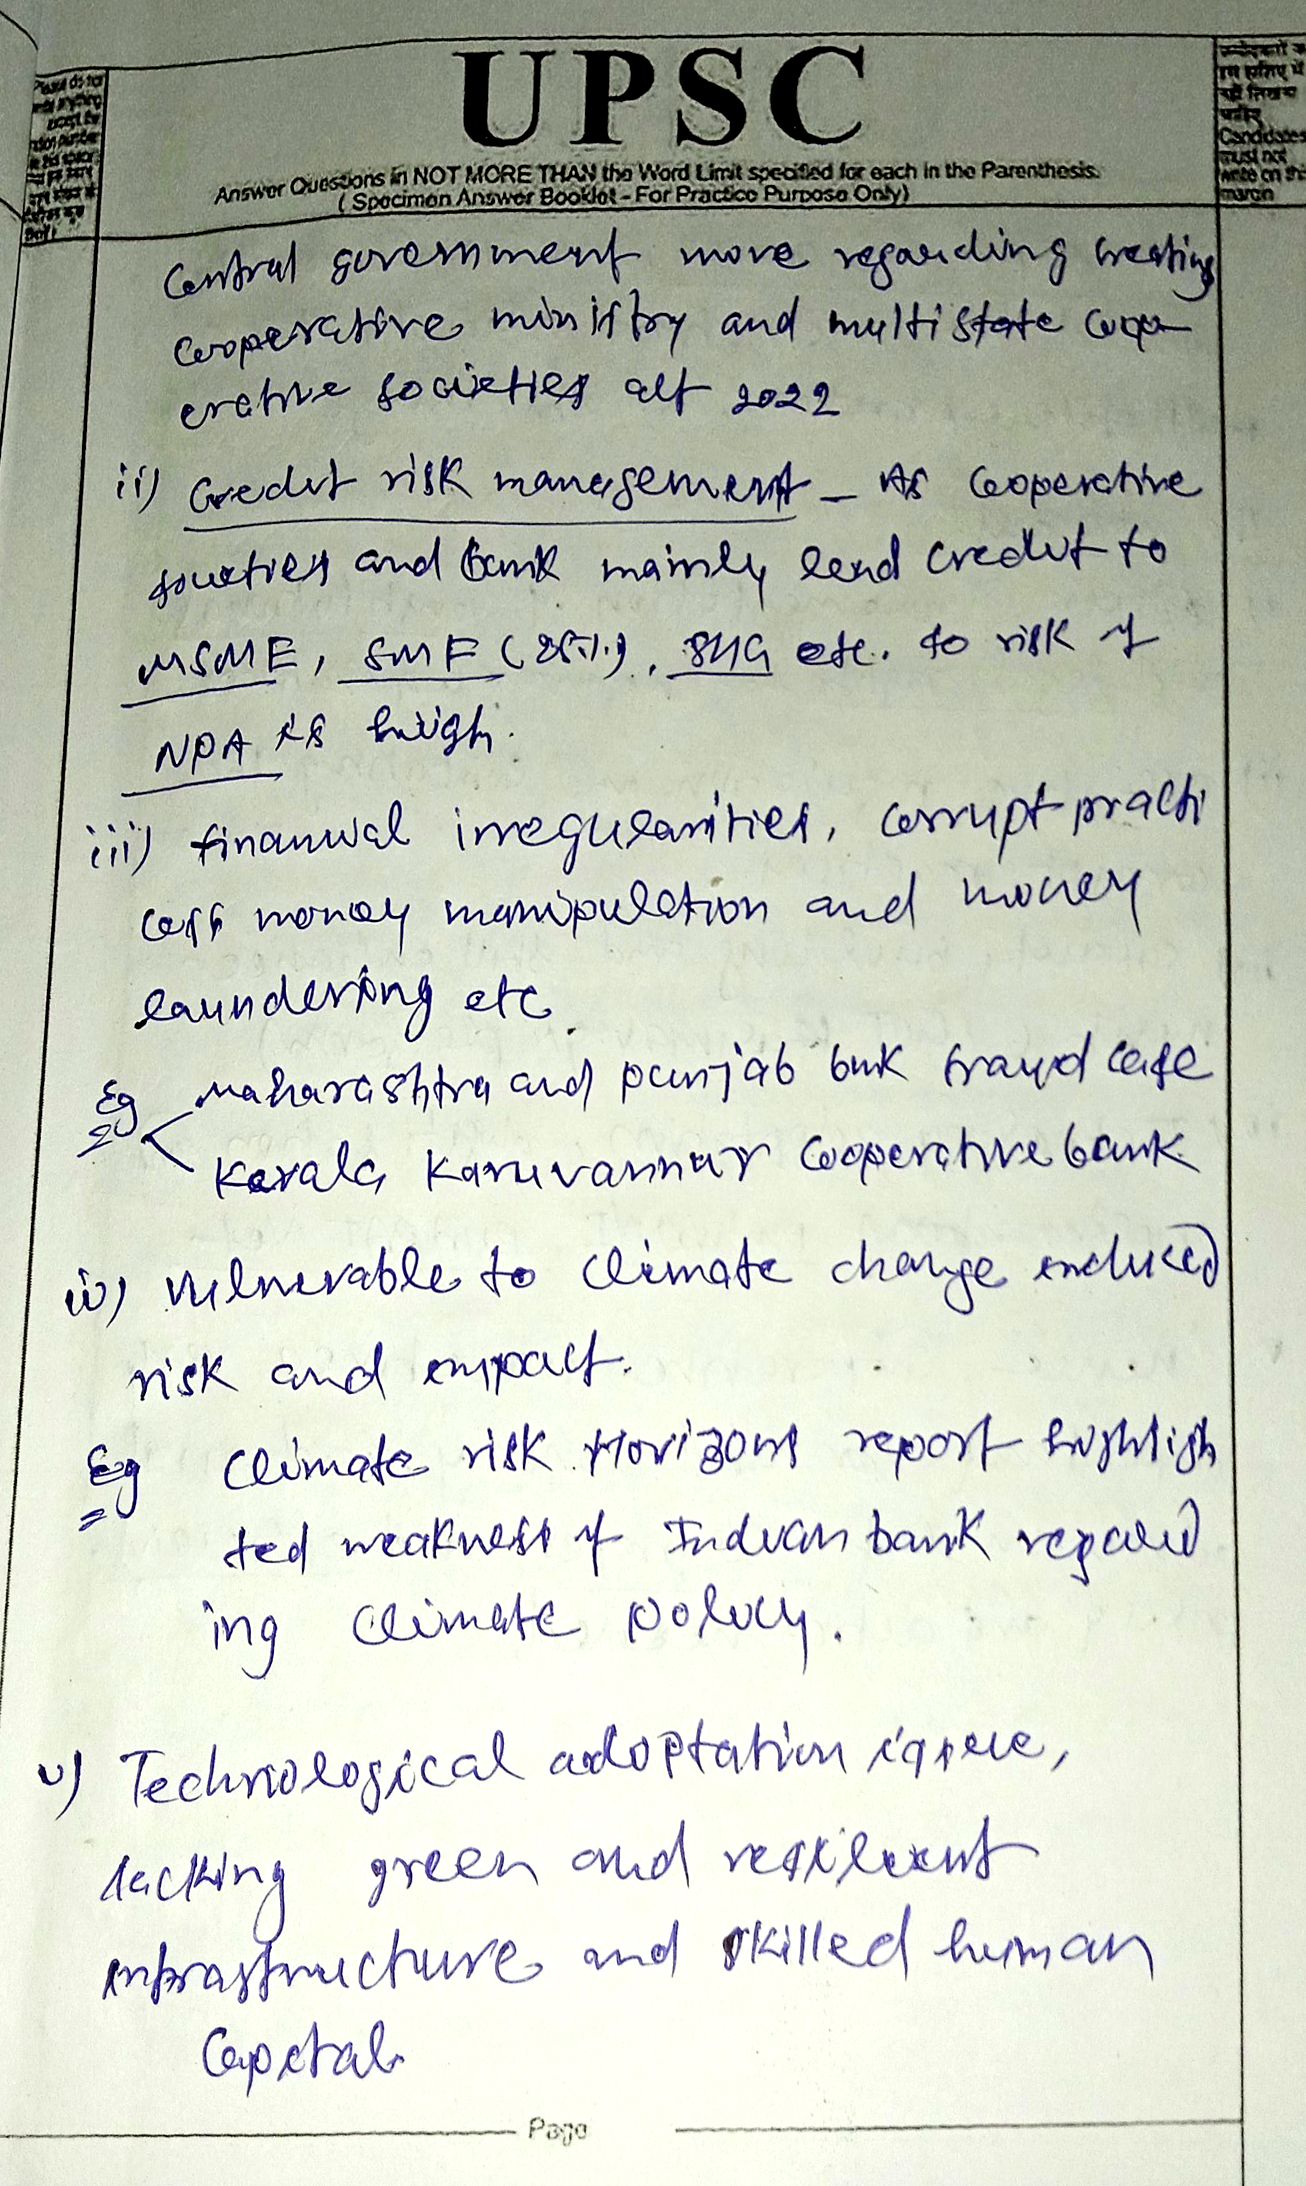 UPSC
Answer Questions in NOT MORE THAN the Word Limit specified for each in the Parenthesis.
( Specimen Answer Booklet - For Practice Purpose Only)
Candidates
must not
write on this
margin
Central government move regarding creating
cooperative ministry and multistate coop
erative societies act 2022
ii) Credit risk management - As cooperative
societies and bank mainly lend credit to
MSME, SMF (25%), SHG etc. so risk of
NPA is high.
iii) financial irregularities, corrupt practi
cess money manipulation and money
laundering etc.
Eg Maharashtra and punjab bnk fraud case
Kerala Karuvannur Cooperative bank
iv) vulnerable to climate change induced
risk and impact.
Eg Climate risk Horizons report highligh
ted weakness of Indian bank regard
ing climate policy.
v) Technological adoptation issue,
lacking green and resilient
infrastructure and skilled human
Capital
Page